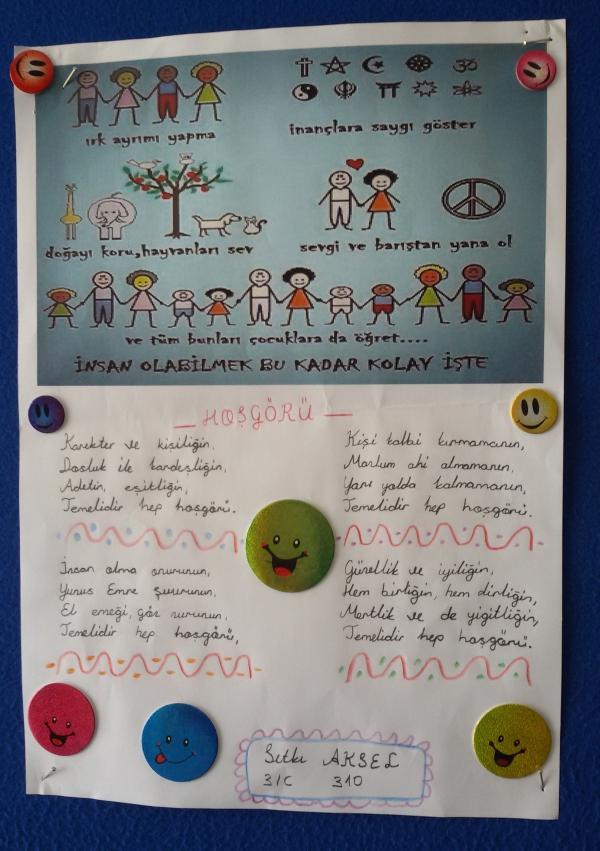 ırk ayrımı yapma
inançlara saygı göster
doğayı koru,hayvanları sev
sevgi ve barıştan yana ol
ve tüm bunları çocuklara da öğret....
İNSAN OLABİLMEK BU KADAR KOLAY İŞTE
— HOŞGÖRÜ —
Karekter ve kişiliğin,
Dosluk ile kardeşliğin,
Adetin, eşitliğin,
Temelidir hep hoşgörü.
Kişi kalbi kırmamanın,
Mazlum ahi almamanın,
Yarı yolda kalmamanın,
Temelidir hep hoşgörü.
İnsan olma onurunun,
Yunus Emre şuurunun,
El emeği, göz nurunun,
Temelidir hep hoşgörü,
Güzellik ve iyiliğin,
Hem birliğin, hem dirliğin,
Mertlik ve de yiğitliğin,
Temelidir hep hoşgörü.
Sıtkı AKSEL
3/C 310